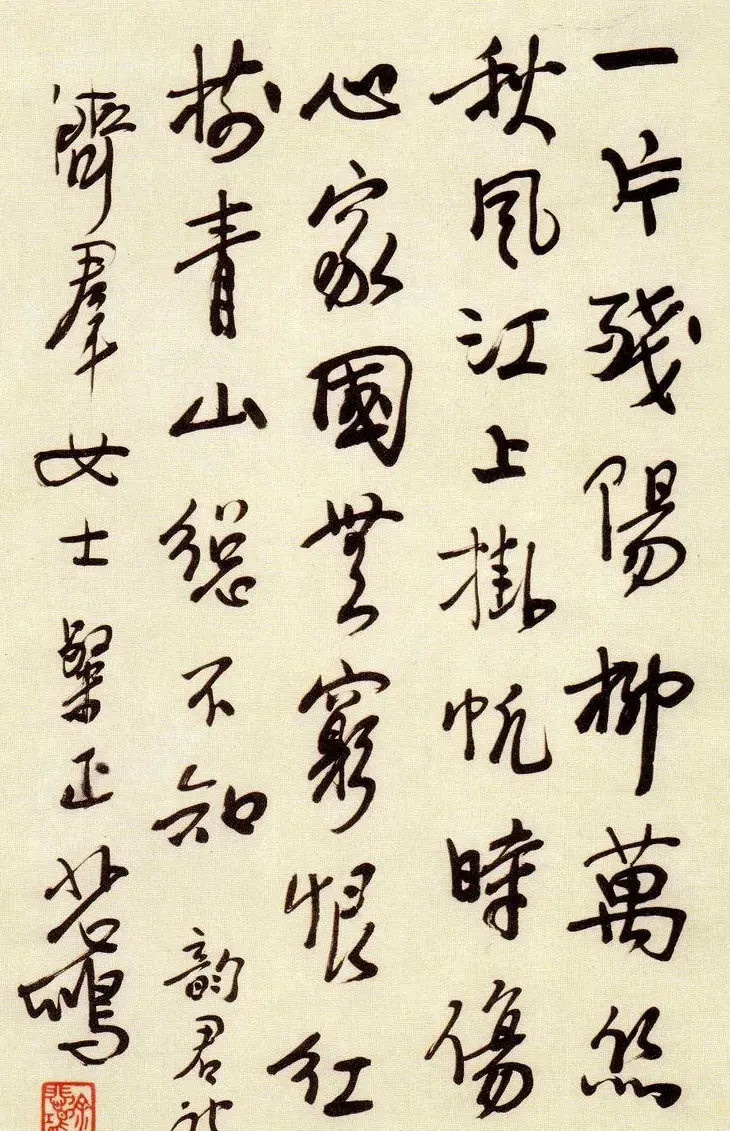 一片殘陽柳萬絲
秋風江上掛帆時傷
心家國無窮恨紅
樹青山總不知 韵君
濟羣女士粲正 悲鴻